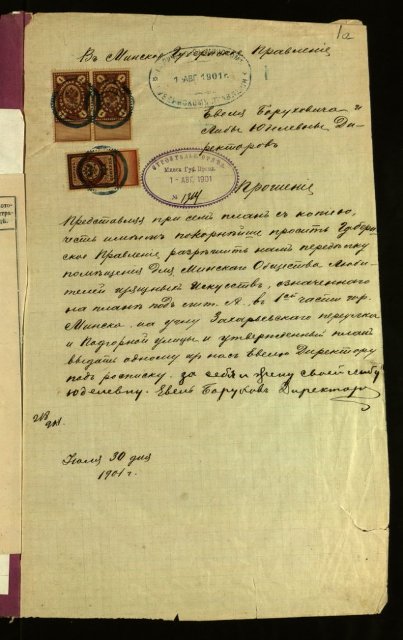 1а
Въ Минское Губернское Правленіе
1 АВГ. 1901 г.
Евеля Боруховича и
Либы Юделевны Ди-
ректоровъ
СТРОИТЕЛЬНОЕ
Минск. Губ. Правл.
1 - АВГ. 1901
№
Прошеніе
Представляя при семъ планъ съ копіею,
честь имѣемъ покорнѣйше просить Губерн-
ское Правленіе разрѣшить намъ перестройку
помѣщенія для Минскаго Общества Люби-
телей изящныхъ Искусствъ, означеннаго
на планѣ подъ лит. А. въ 1ой части гор.
Минска на углу Захарьевскаго переулка
и Подгорной улицы и утвержденный планъ
выдать одному изъ насъ Евелю Директору
подъ росписку. за себя и жену свою Либу
Юделевну. Евель Боруховъ Директоръ
Іюля 30 дня
1901 г.